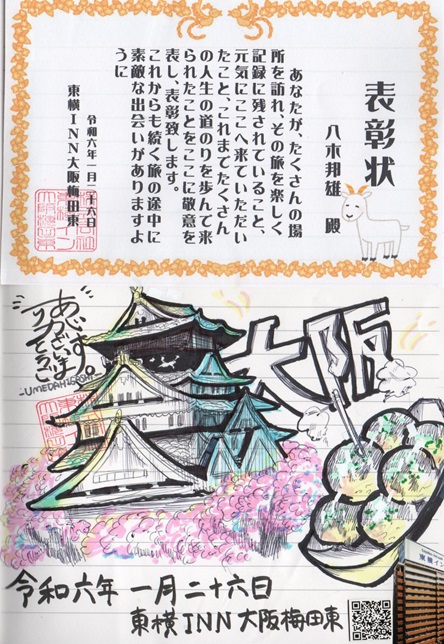 表彰状
八木邦雄 殿
あなたが、たくさんの場
所を訪れ、その旅を楽しく
記録に残されていること、
元気にここへ来ていただい
たこと、これまでたくさん
の人生の道のりを歩んで来
られたことをここに敬意を
表し、表彰致します。
これからも続く旅の途中に
素敵な出会いがありますよ
うに
令和六年一月二十六日
東横INN大阪梅田東
ありがとうございます。
大阪
令和六年 一月二十六日
東横INN大阪梅田東
東横イン